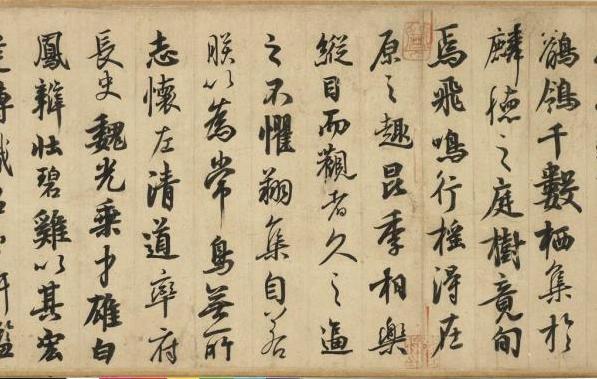 鶺鴒千數栖集於
麟德之庭樹竟旬
焉飛鳴行搖得在
原之趣昆季相樂
縱目而觀者久之逼
之不懼翔集自若
朕以為常鳥無所
志懷左清道率府
長史魏光乘才雄白
鳳辯壯碧雞以其宏
達博識召至軒檻